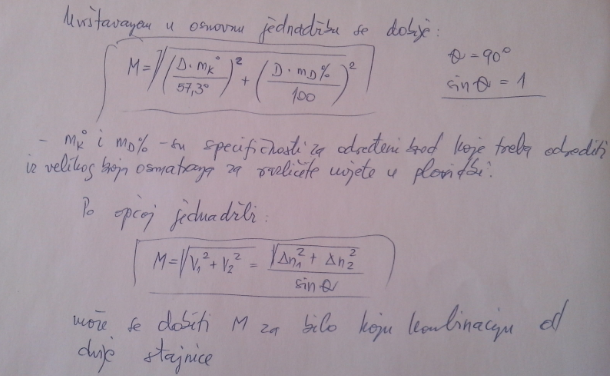 Uvrštavanjem u osnovnu jednadžbu se dobije:
M = √((D · mK° / 57,3°)² + (D · mD% / 100)²)
θ = 90°
sin θ = 1
- mK° i mD% - su specifičnosti za određeni brod koje treba odrediti
iz velikog broja osmatranja za različite uvjete u plovidbi.
Po općoj jednadžbi:
M = √(V₁² + V₂²) = √(Δn₁² + Δn₂²) / sin θ
može se dobiti M za bilo koju kombinaciju od
dvije stajnice